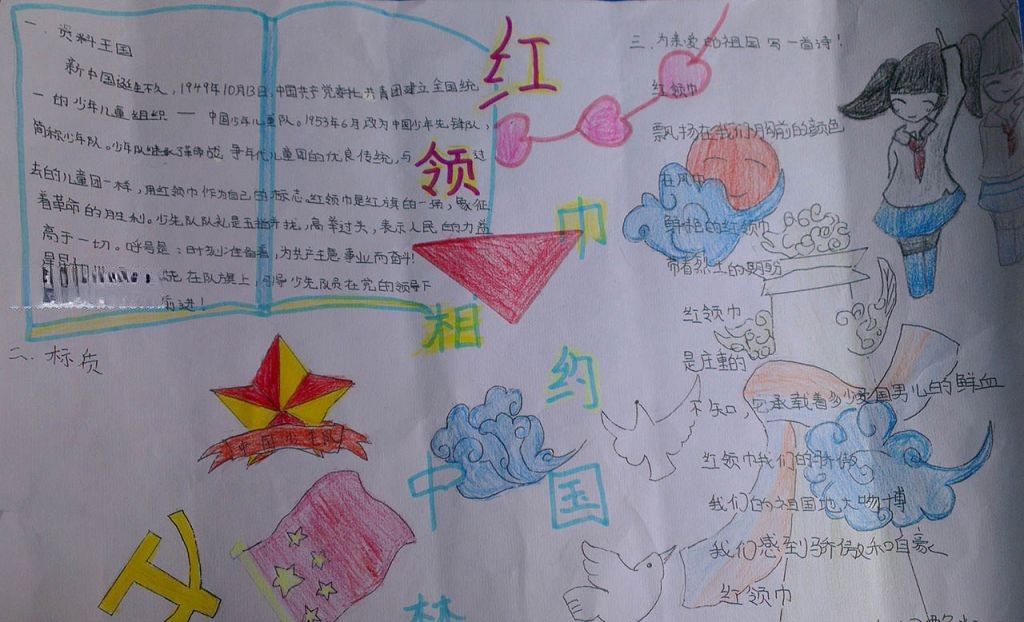 一、资料王国
新中国诞生不久，1949年10月13日，中国共产党委托共青团建立全国统
一的少年儿童组织 — 中国少年儿童队。1953年6月改为中国少年先锋队，
简称少年队。少年队继承了革命战争年代儿童团的优良传统，与过
去的儿童团一样，用红领巾作为自己的标志。红领巾是红旗的一角，象征
着革命的胜利。少先队队礼是五指并拢，高举过头，表示人民的力益
高于一切。呼号是：时刻准备着，为共产主意事业而奋斗！
星星
在队旗上，引导少先队员在党的领导下
前进！
二、标质
中国少先队
红
领
巾
相
约
中
国
梦
三、为亲爱的祖国写一首诗！
红领巾
飘扬在我们胸前的颜色
在风中
鲜艳的红领巾
带着烈士的期盼
红领巾
是庄重的
不知，它承载着多少爱国男儿的鲜血
红领巾我们的骄傲
我们的祖国地大物博
我们感到骄傲和自豪
红领巾